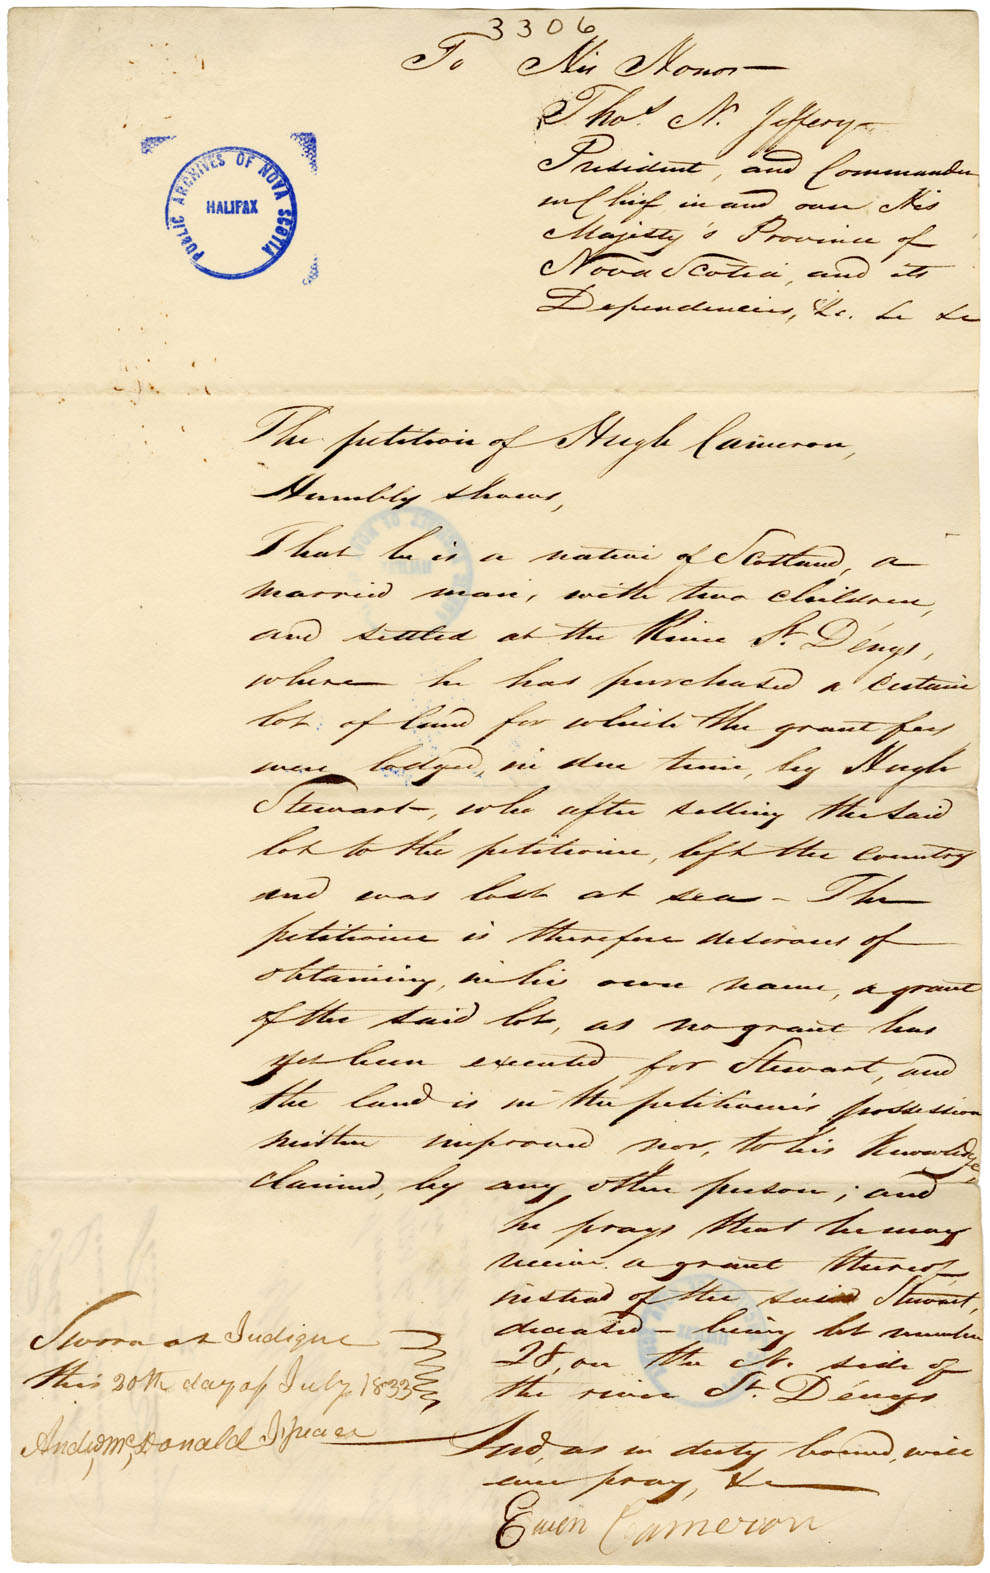 3306
To His Honor
Thos. N. Jeffery
President, and Commander
in Chief in and over His
Majesty's Province of
Nova Scotia, and its
Dependencies, &c. &c &c
PUBLIC ARCHIVES OF NOVA SCOTIA
HALIFAX
The petition of Hugh Cameron,
Humbly shows,
That he is a native of Scotland, a
married man, with two children,
and settled at the River St. Dénys,
where he has purchased a certain
lot of land for which the grant fees
were lodged, in due time, by Hugh
Stewart, who after selling the said
lot to the petitioner, left the country
and was lost at sea - The
petitioner is therefore desirous of
obtaining, in his own name, a grant
of the said lot, as no grant has
yet been executed for Stewart, and
the land is in the petitioner's possession
neither improved nor, to his knowledge,
claimed, by any other person; and
he prays that he may
receive a grant thereof,
instead of the said Stewart,
deceased - being lot number
28, on the N. side of
the river St. Dénys
And, as in duty bound, will
ever pray, &c
Ewen Cameron
Sworn at Judique
this 20th day of July 1833
Andw McDonald J. Peace